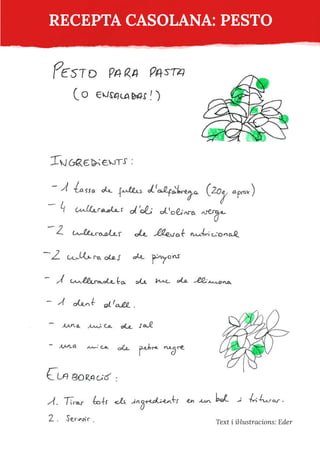 RECEPTA CASOLANA: PESTO
PESTO PARA PASTA
(O ENSALADAS!)
INGREDIENTS:
- 1 tassa de fulles d'alfàbrega (20g aprox)
- 4 cullerades d'oli d'oliva verge
- 2 cullerades de llevat nutricional
- 2 cullerades de pinyons
- 1 culleradeta de suc de llimona
- 1 dent d'all.
- una mica de sal
- una mica de pebre negre
ELABORACIÓ:
1. Tirar tots els ingredients en un bol i triturar.
2. Servir.
Text i il·lustracions: Eder